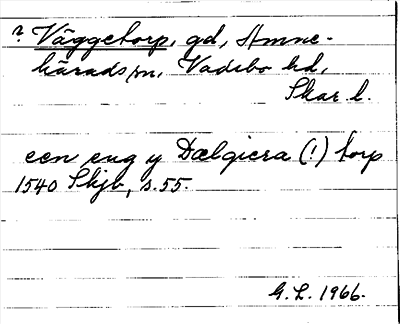 ? Väggetorp, gd, Amne-
härads sn, Vadsbo hd,
Skar. l.
een eng y Dælgiera (!) torp
1540 Skjb, s. 55.
G. L. 1966.